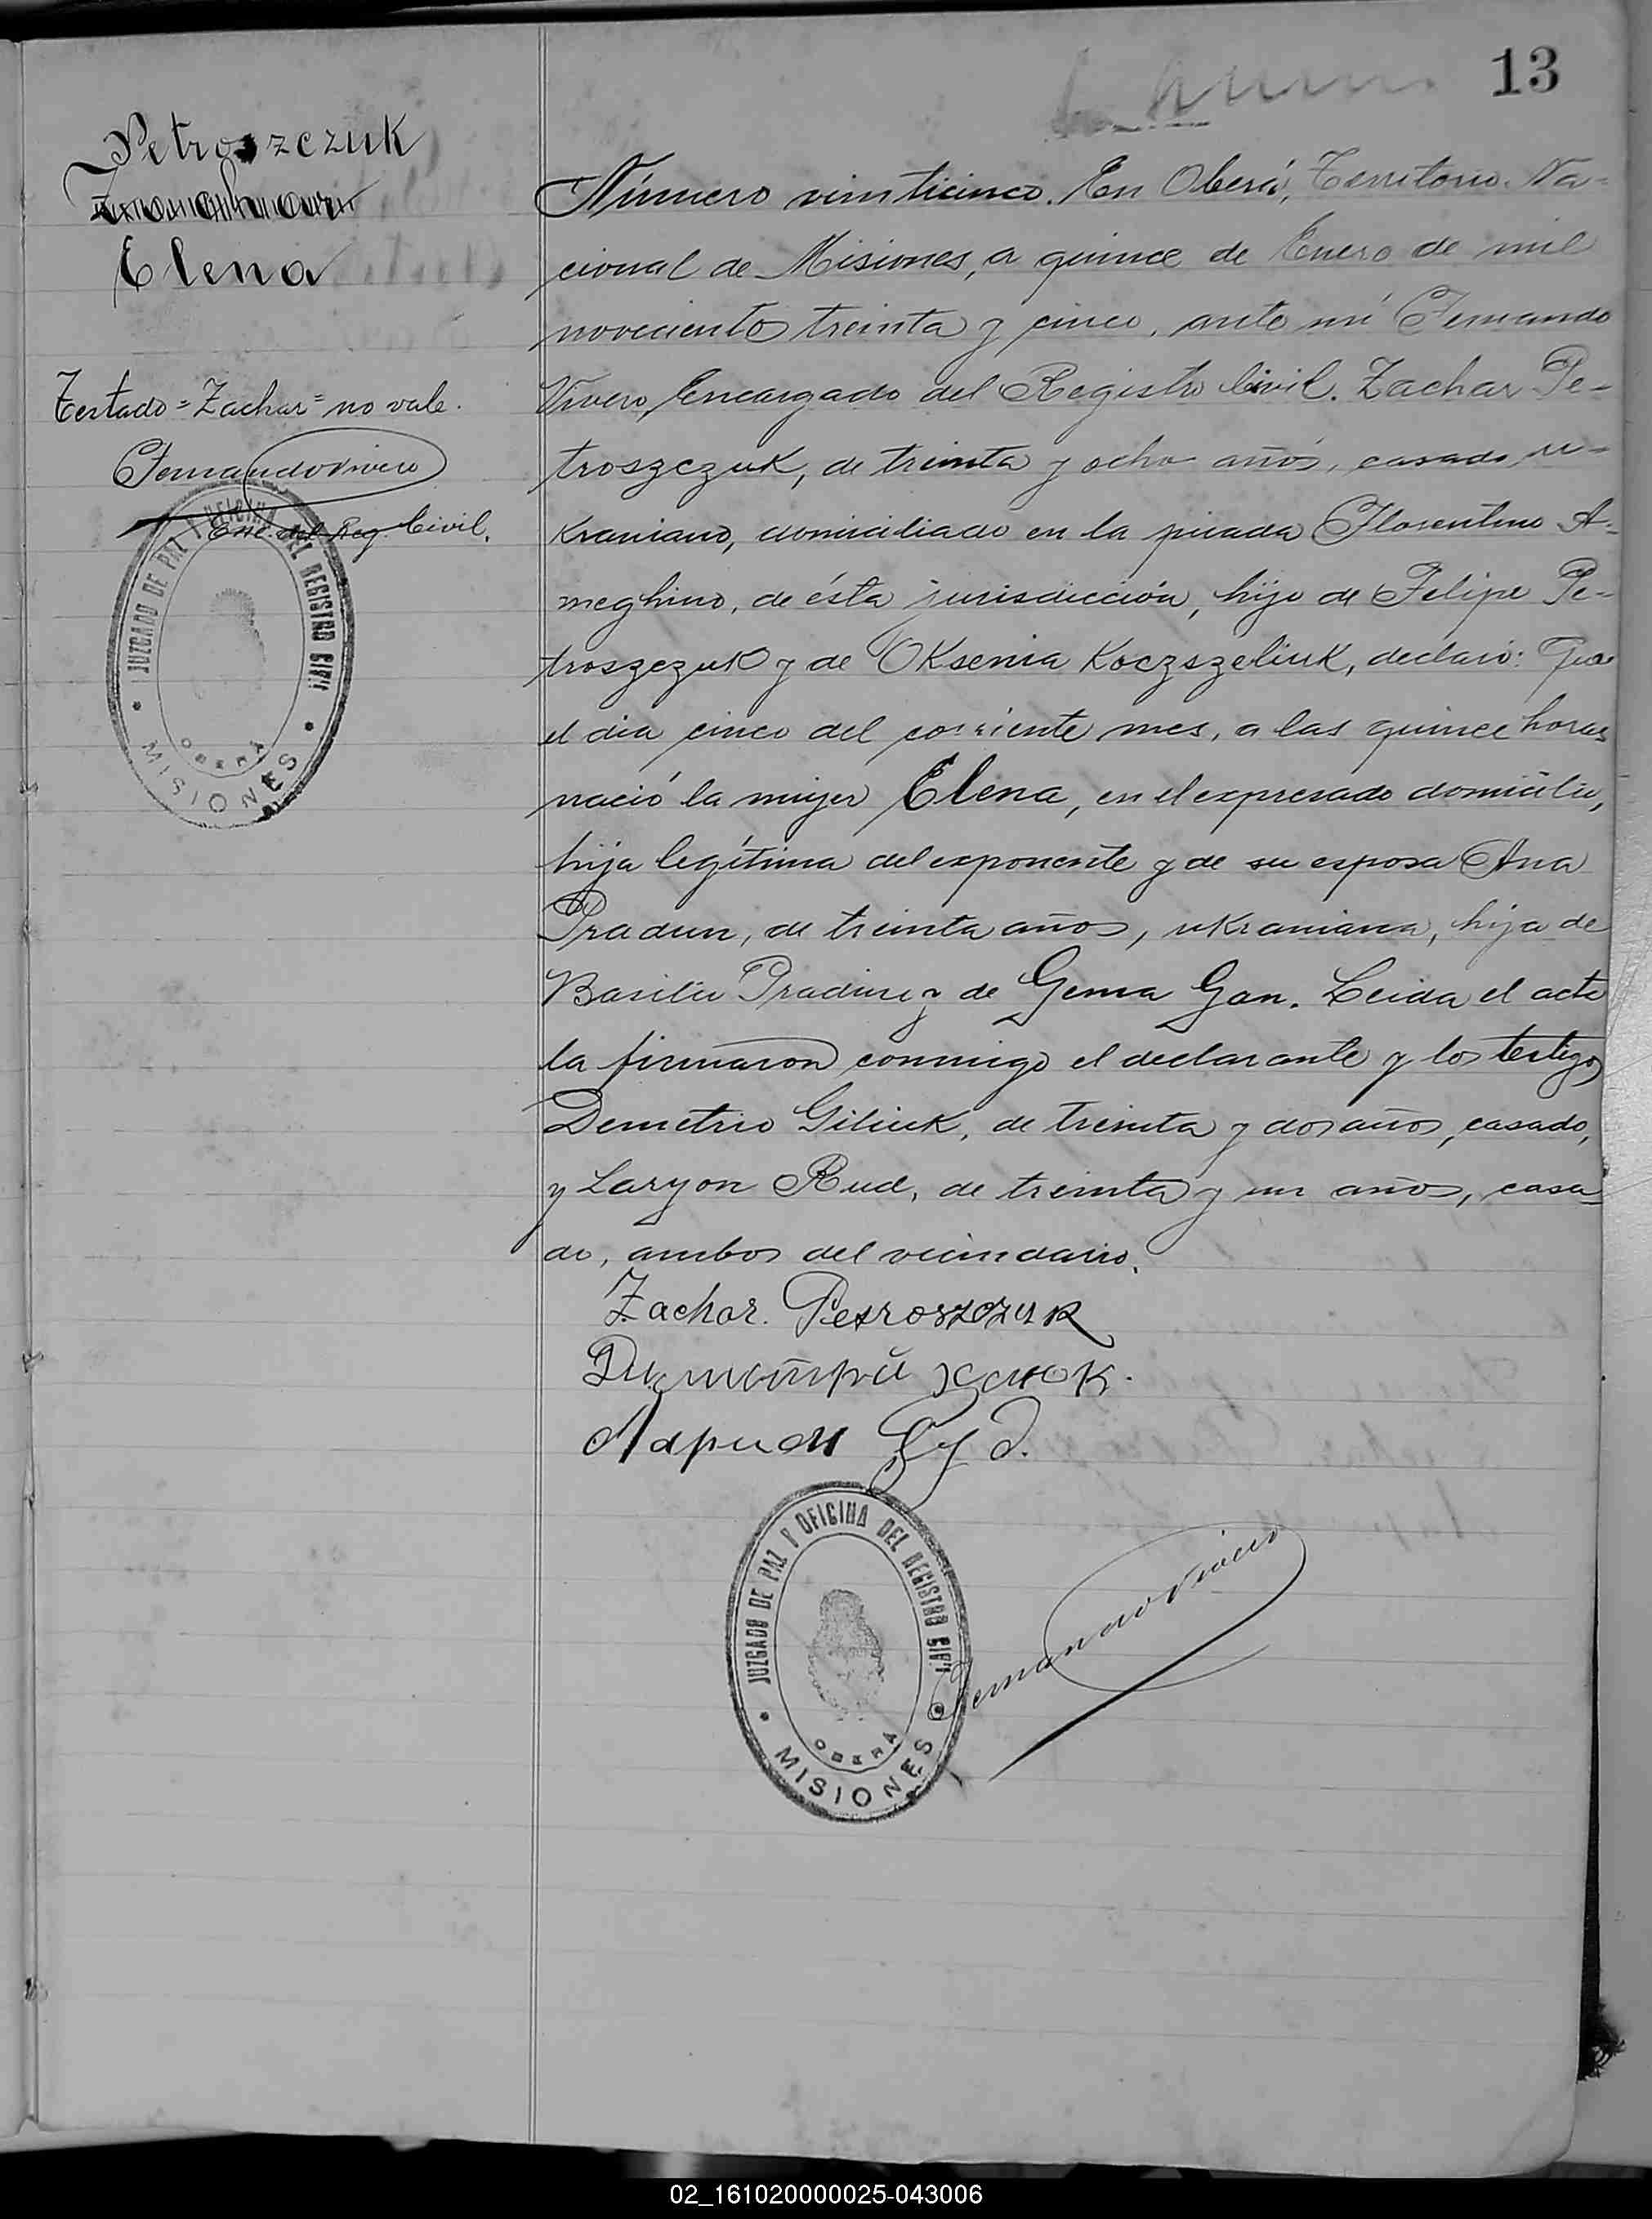 13
Petroszczuk
Elena
Testado = Zachar = no vale.
Fernando Vivero
Enc. del Reg. Civil.
JUZGADO DE PAZ Y OFICINA DEL REGISTRO CIVIL
OBERÁ
MISIONES
Número vinticinco. En Oberá, Territorio Na-
cional de Misiones, a quince de Enero de mil
noveciento treinta y cinco, ante mí Fernando
Vivero, Encargado del Registro Civil. Zachar Pe-
troszczuk, de treinta y ocho años, casado, u-
kraniano, domiciliado en la picada Florentino A-
meghino, de ésta jurisdicción, hijo de Felipe Pe-
troszczuk y de Oksenia Koczszeliuk, declaró: Que
el dia cinco del corriente mes, a las quince horas
nació la mujer Elena, en el expresado domicilio,
hija legítima del exponente y de su esposa Ana
Pradun, de treinta años, ukraniana, hija de
Basilio Pradun y de Gema Gan. Leida el acta
la firmaron conmigo el declarante y los testigos
Demetrio Giliuk, de treinta y dos años, casado,
y Laryon Rud, de treinta y un años, casa-
do, ambos del vecindario.
Zachar. Petroszczuk
Ларион Руд.
JUZGADO DE PAZ Y OFICINA DEL REGISTRO CIVIL
OBERÁ
MISIONES
Fernando Vivero
02_161020000025-043006